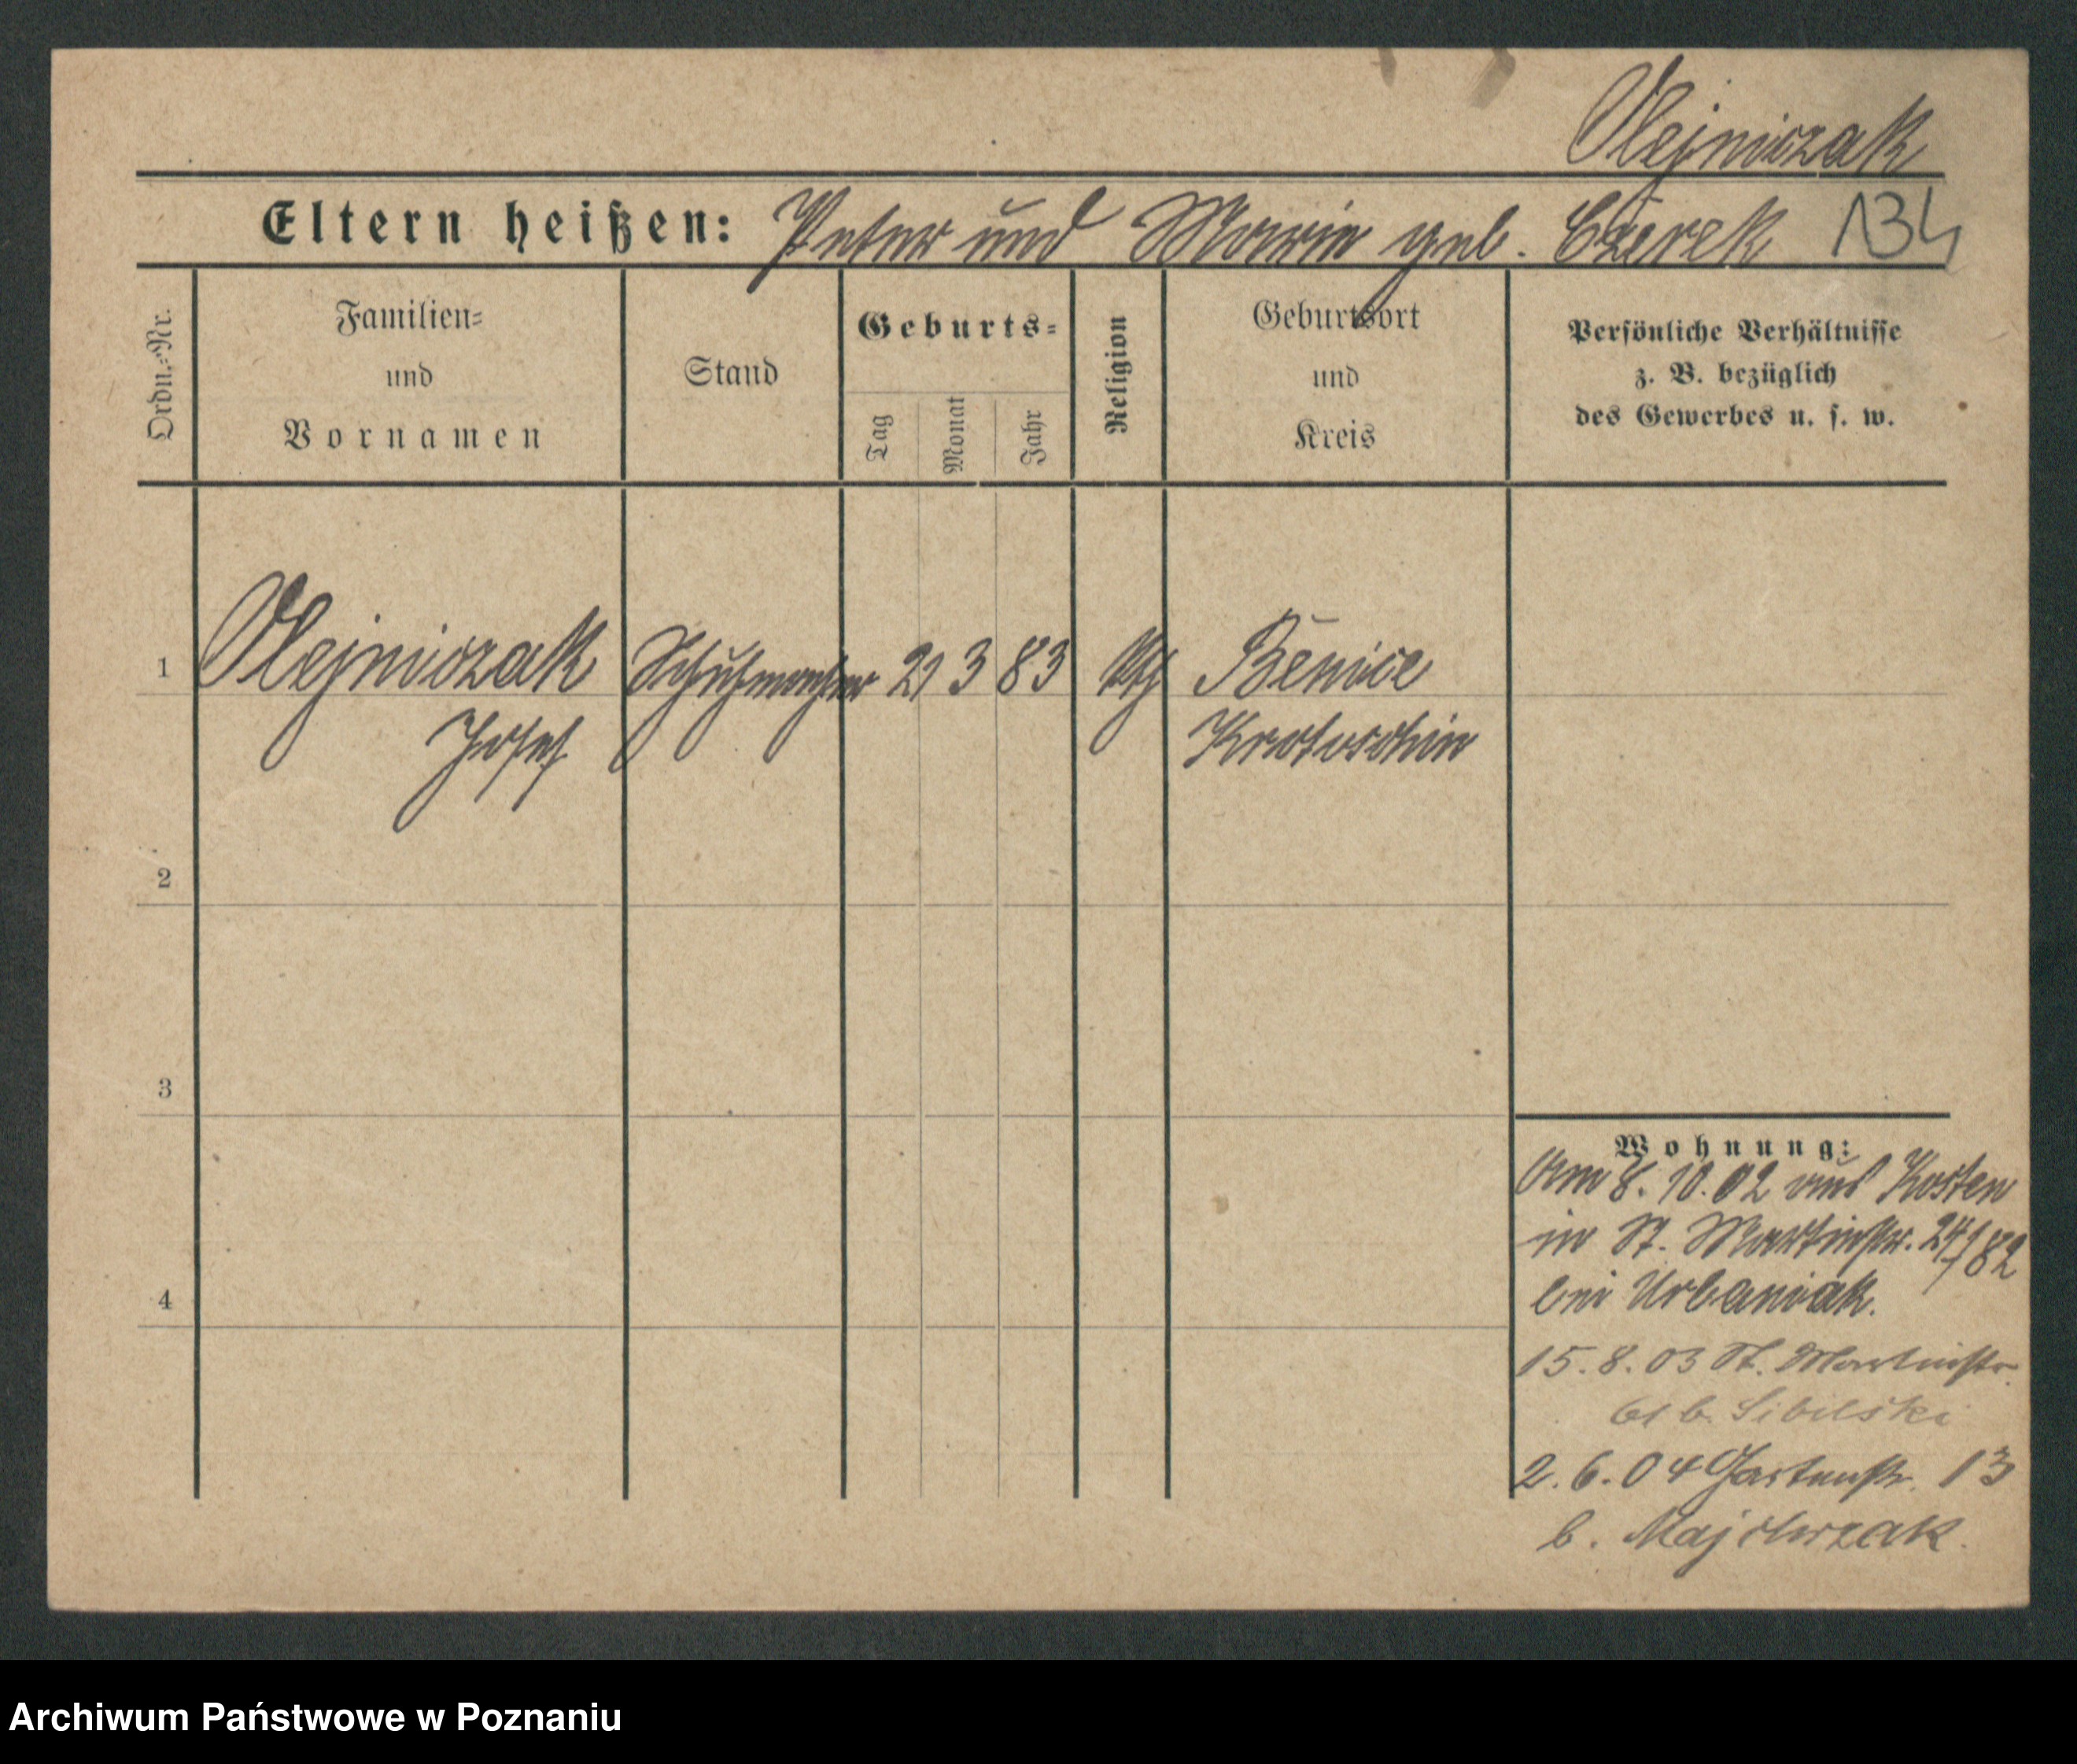 Olejniczak
Eltern heißen: Peter und Marie geb. Czerek 134
Ordn.=Nr.
Familien=
und
Vornamen
Stand
Geburts=
Tag
Monat
Jahr
Religion
Geburtsort
und
Kreis
Persönliche Verhältnisse
z. B. bezüglich
des Gewerbes u. s. w.
1 Olejniczak Schuhmacher 21 3 83 kth Benice
Josef Krotoschin
2
3
4
Wohnung:
Am 8. 10. 02 aus Kosten
in St. Martinstr. 24/82
bei Urbaniak.
15. 8. 03 St. Martinstr.
61 b. Sibilski
2. 6. 04 Gartenstr. 13
b. Majchrzak.
Archiwum Państwowe w Poznaniu